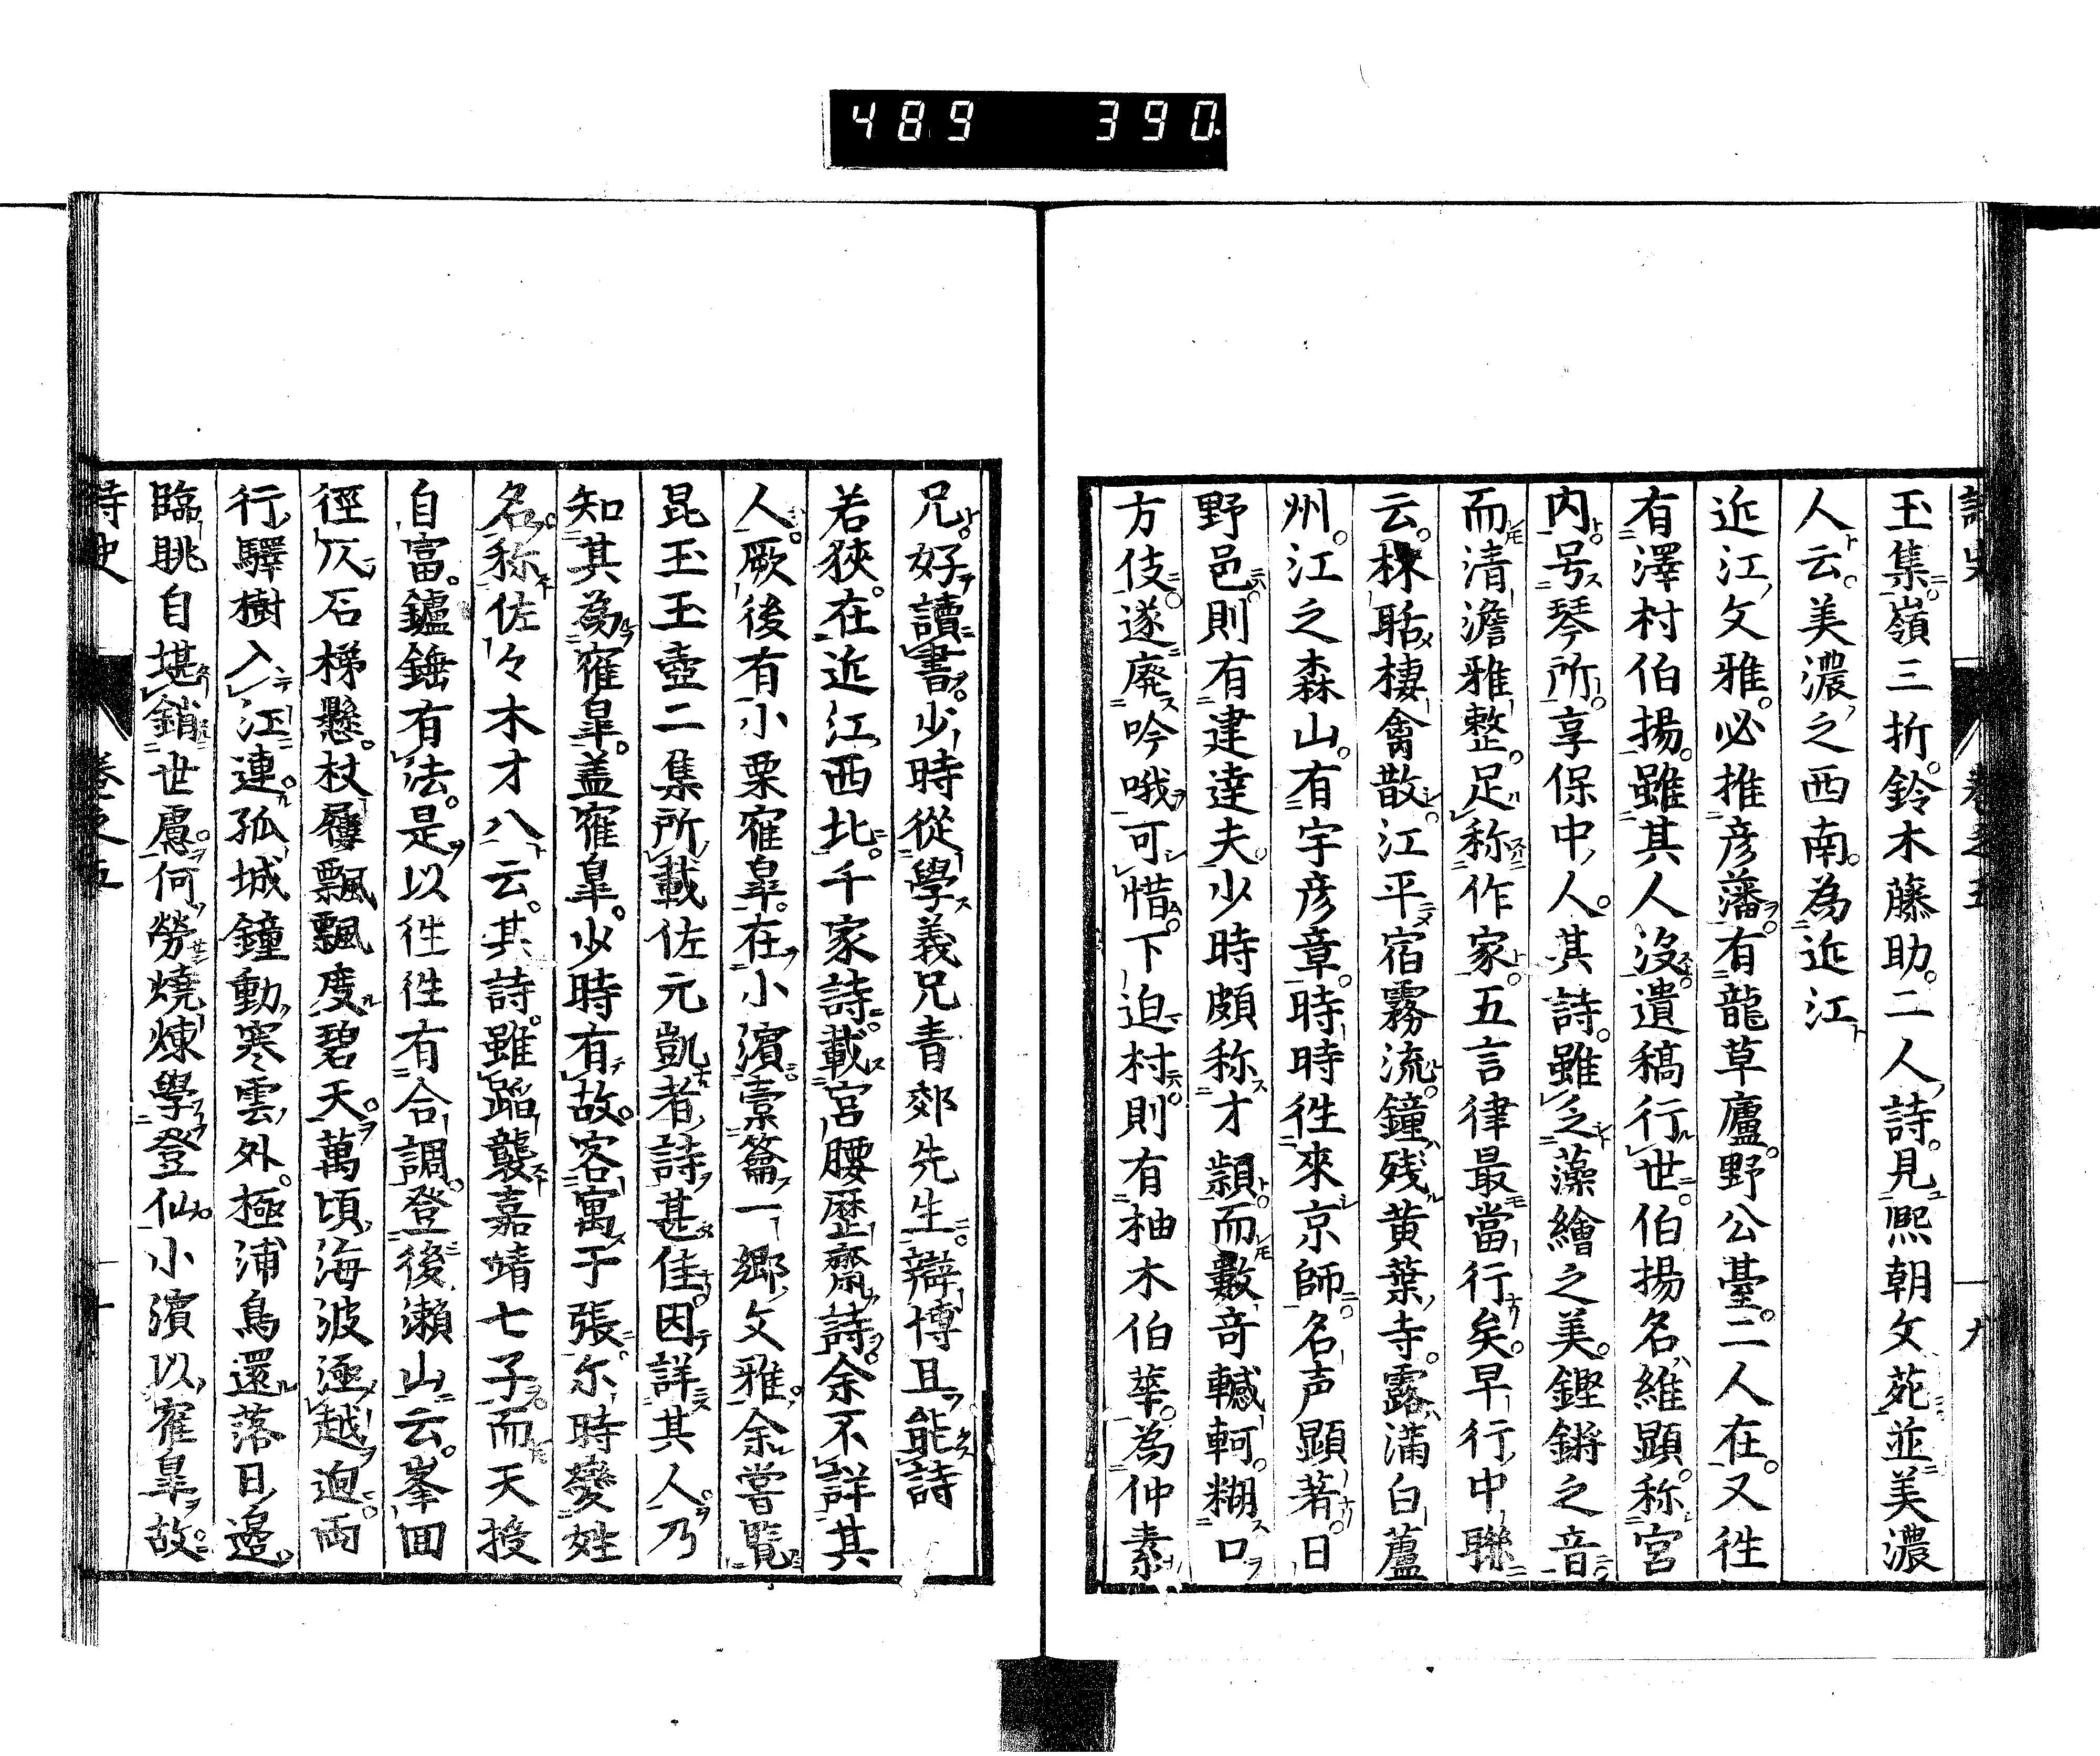 489 390
玉集。嶺三折。鈴木藤助。二人詩。見熙朝文苑。並美濃
人云。美濃之西南。為近江
近江文雅。必推彦藩。有龍草廬。野公臺。二人在。又徃
有澤村伯揚。雖其人沒。遺稿行世。伯揚名維顕。称宮
内。号琴所。享保中人。其詩。雖乏藻繪之美。鏗鏘之音
而清澹雅整。足称作家。五言律最當行矣。早行中聯
云。棲禽散。江平宿霧流。鐘残黄葉寺。露滿白蘆
州。江之森山。有宇彦章。時時徃來京師。名声顕著。日
野邑。則有建達夫。少時頗称才穎。而數奇轗軻。糊口
方伎。遂廃吟哦。可惜。下迫村。則有柚木伯華。為仲素
兄。好讀書。少時從學義兄青郊先生。辯博且能詩
若狹。在近江西北。千家詩。載宮腰歷齋詩。余不詳其
人。厥後有小栗寉皐。在小濱。橐籥一鄉文雅。余嘗覧
昆玉玉壺二集所載佐元凱者詩甚佳。因詳其人。乃
知其為寉皐。盖寉皐。少時有故。客寓于張。尓時變姓
名。称佐々木才八云。其詩。雖蹈襲嘉靖七子。而天授
自富。鑪錘有法。是以徃徃有合調。登後瀬山云。峯回
徑仄石梯懸。杖屨飄飄度碧天。萬頃海波極越迥。兩
行驛樹入江連。孤城鐘動寒雲外。極浦鳥還落日邉。
臨眺自堪銷世慮。何勞燒煉學登仙。小濱以寉皐故
詩史 卷之五